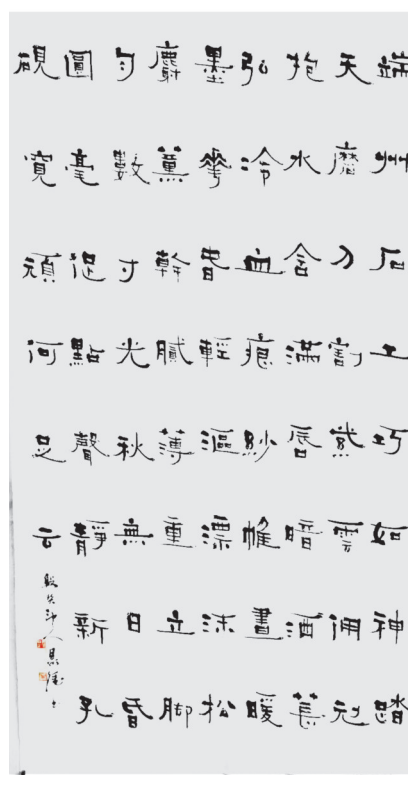 端州石工巧如神踏
天磨刀割紫雲佣刓
抱水含滿唇暗洒萇
弘冷血痕紗帷晝暖
墨華春輕漚漂沫松
麝薰幹膩薄重立脚
匀數寸光秋無日昏
圓毫促點聲靜新孔
硯寬頑何足云